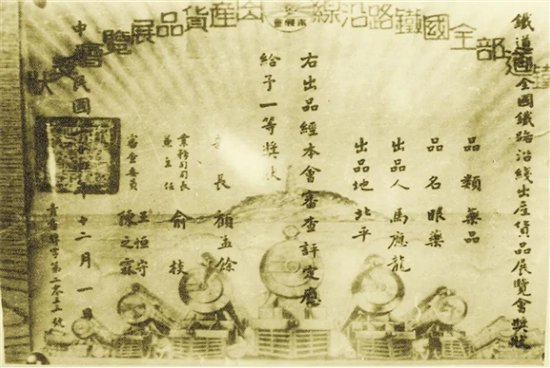 部全國鐵路沿線出產貨品展覽會
鐵道部全國鐵路沿綫出產貨品展覽會獎狀
品類藥品
品名眼藥
出品人馬應龍
出品地北平
右出品經本會審查評定應
給予一等獎狀
長顧孟餘
業務司司長
兼主任
俞棪
審查委員
王恒守
陳之霖
中華民國
年十二月一日
字第二零三
號